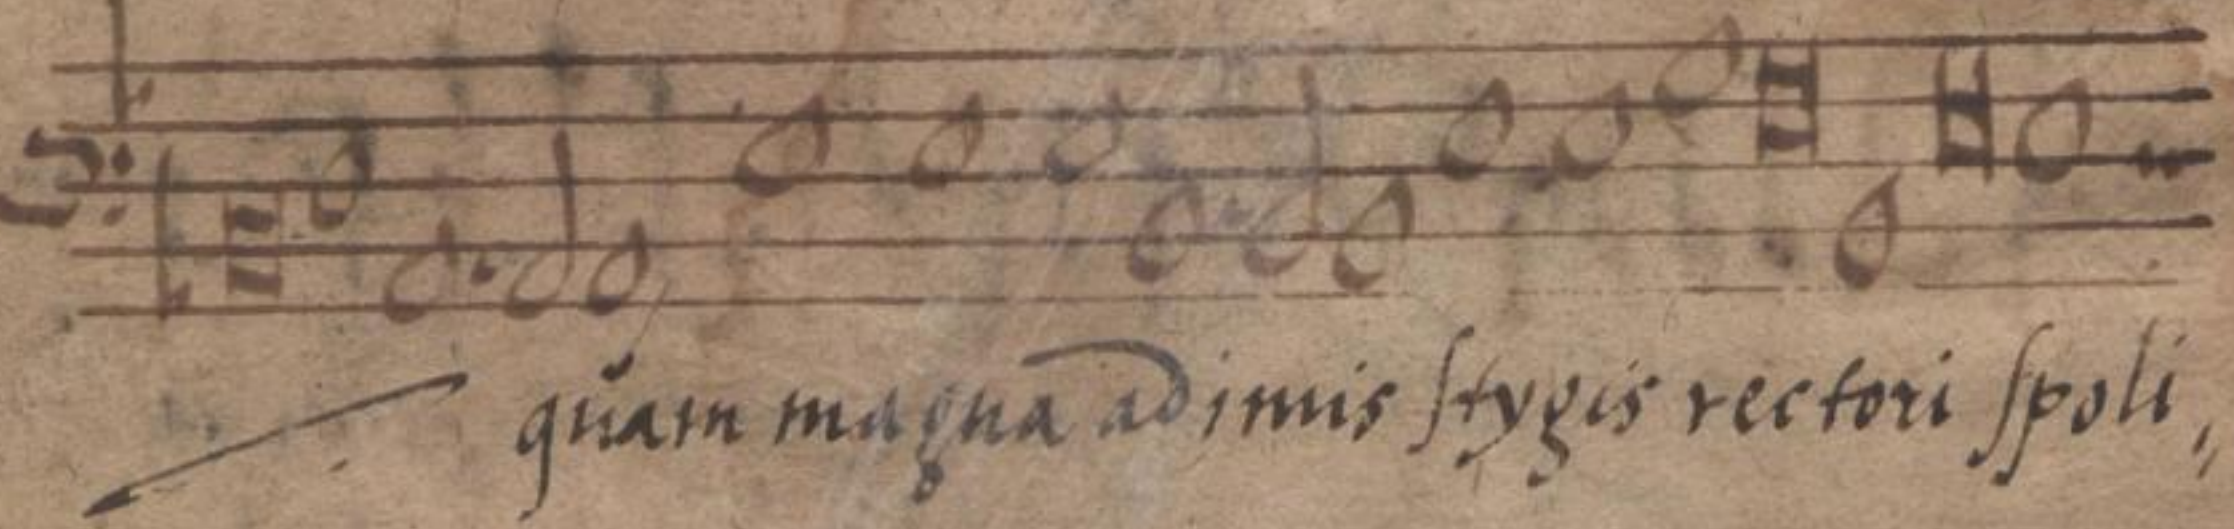 quam magna adimis stygis rectori spoli,,